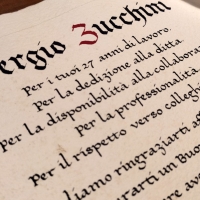 ergio Zucchini
Per i tuoi 27 anni di lavoro.
Per la dedizione alla ditta
Per la disponibilità alla collabora
Per la professionalità
Per il rispetto verso collegh
liamo ringraziarti a
rarti un Buon